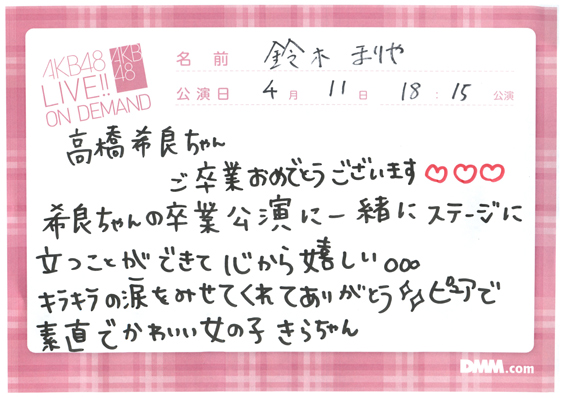 AKB48
LIVE!!
ON DEMAND
AKB
48
名前 鈴木まりや
公演日 4月 11日 18:15 公演
高橋希良ちゃん
ご卒業おめでとうございます♡♡♡
希良ちゃんの卒業公演に一緒にステージに
立つことができて心から嬉しい。。。
キラキラの涙をみせてくれてありがとう✨ピュアで
素直でかわいい女の子 きらちゃん
DMM.com